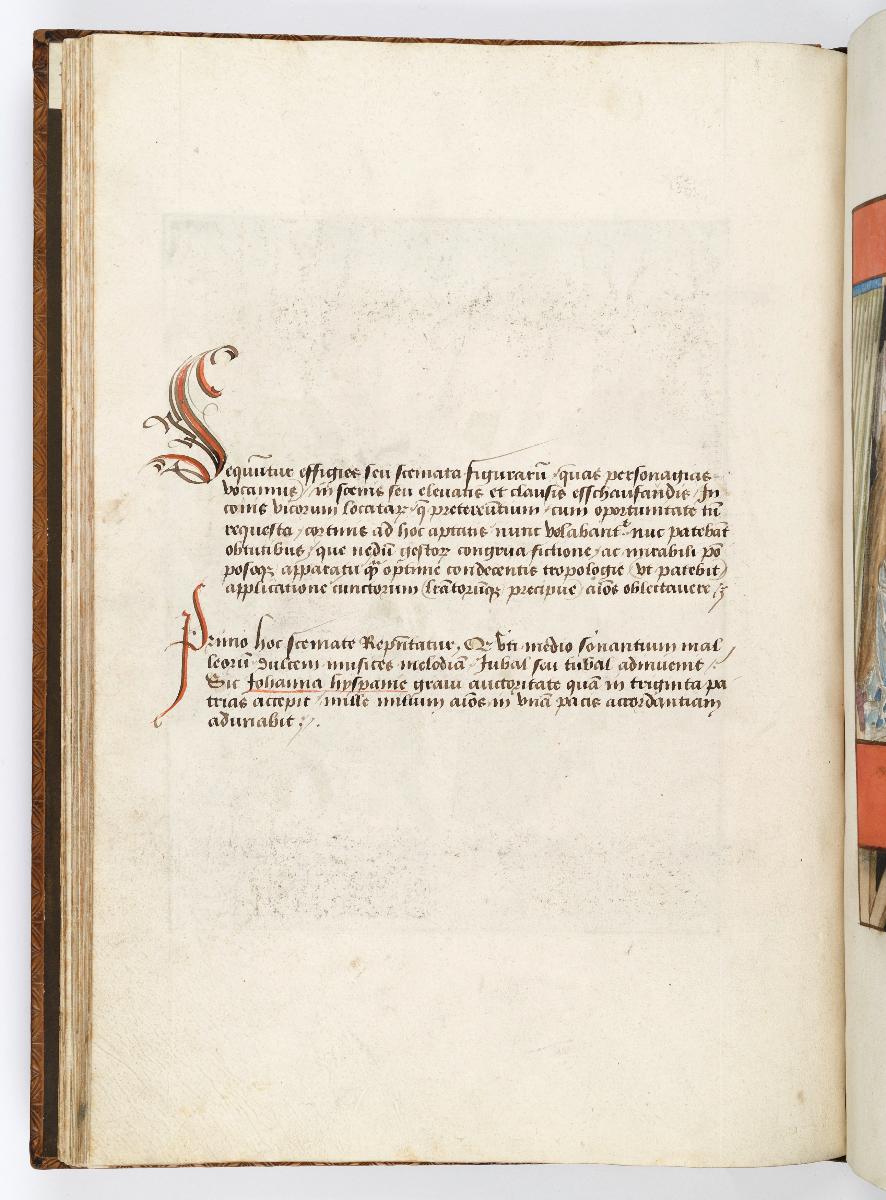 Sequũtur effigies seu scemata figurarũ / quas personagias
vocamus / in scenis seu elevatis et clausis esschaufandis / In
conis vicorum locataꝝ / q̃ pretereũtium / cum oportunitate tũ
requesta / cortinis ad hoc aptatis nunc volabant² / nũc patebãt
obtutibus / que nedũ gestoꝝ congrua fictione / ac mirabili põ
poseqꝫ apparatu ꝙ̃ optime condecentis tropologie (vt patebit)
applicatione cunctorum (lr̃atorũqꝫ precipue) aĩos oblectavere /
Primo hoc scemate Rep̃ntatur, Q̃ vti medio sonantium mal
leorũ dulcem musices melodiã / Jubal seu tubal adinvenit /
Sic Johanna hyspanie gravi auctoritate quã in triginta pa
trias accepit / mille milium aĩos in vnã pacis accordantiam
adunabit /.